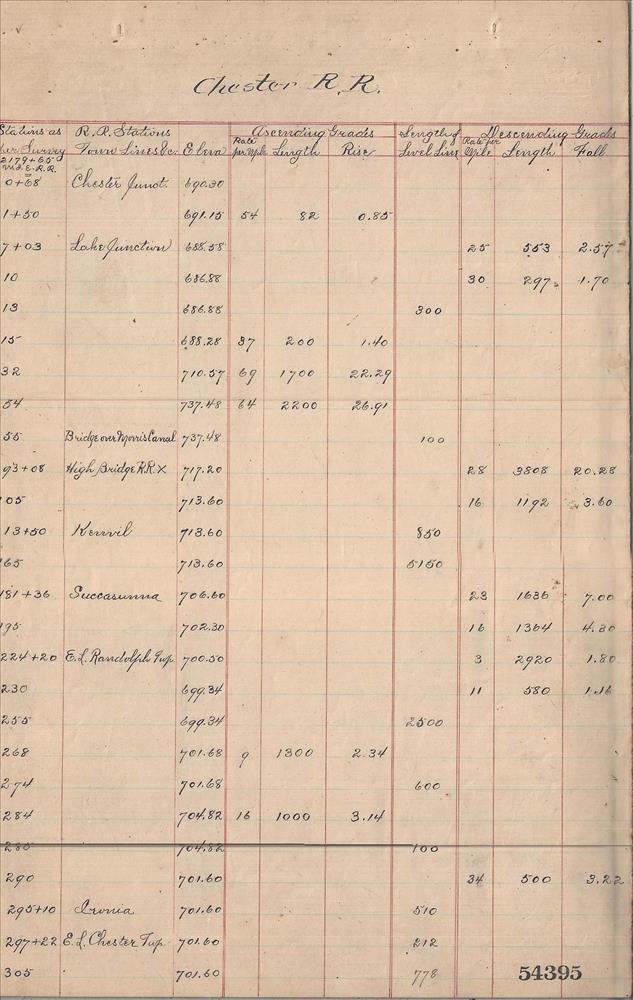 Chester R.R.
Stations as R.R. Stations Ascending Grades Length of Descending Grades
per Survey Town Lines &c Eleva Rate per Mile Length Rise Level Line Rate per Mile Length Fall
2179+65
M.&E.R.R.
=
0+68 Chester Junct. 690.30
1+50 691.15 54 82 0.85
7+03 Lake Junction 688.58 25 553 2.57
10 686.88 30 297 1.70
13 686.88 300
15 688.28 37 200 1.40
32 710.57 69 1700 22.29
54 737.48 64 2200 26.91
55 Bridge over Morris Canal 737.48 100
93+08 High Bridge R.R. X 717.20 28 3808 20.28
105 713.60 16 1192 3.60
13+50 Kenvil 713.60 850
165 713.60 5150
181+36 Succasunna 706.60 23 1636 7.00
195 702.30 16 1364 4.30
224+20 E.L. Randolph Twp. 700.50 3 2920 1.80
230 699.34 11 580 1.16
255 699.34 2500
268 701.68 9 1300 2.34
274 701.68 600
284 704.82 16 1000 3.14
285 704.82 100
290 701.60 34 500 3.22
295+10 Ironia 701.60 510
297+22 E.L. Chester Twp. 701.60 212
305 701.60 778
54395